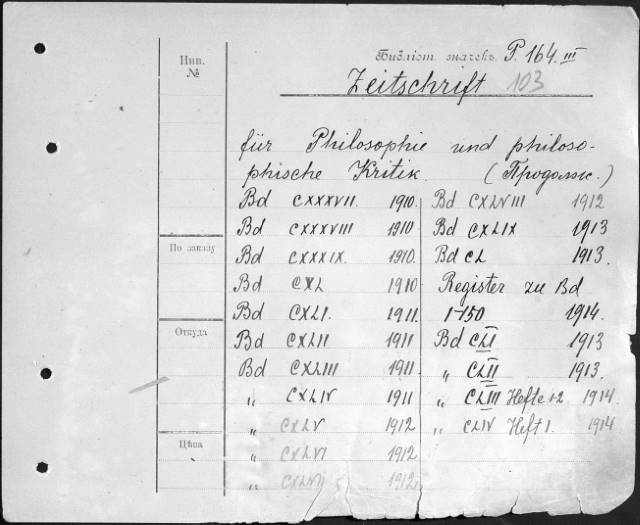 Инв.
№
По заказу
Откуда
Цѣна
Библіот. значекъ. P. 164. III
Zeitschrift 103
für Philosophie und philoso-
phische Kritik. (Продолж.)
Bd CXXXVII. 1910.
Bd CXXXVIII 1910
Bd CXXXIX. 1910.
Bd CXL 1910
Bd CXLI. 1911.
Bd CXLII 1911
Bd CXLIII 1911.
„ CXLIV 1911
„ CXLV 1912
„ CXLVI 1912
„ CXLVII 1912.
Bd CXLVIII 1912
Bd CXLIX 1913
Bd CL 1913.
Register zu Bd
1-150 1914.
Bd CLI 1913
„ CLII 1913.
„ CLIII Hefte 1-2 1914.
„ CLIV Heft 1. 1914